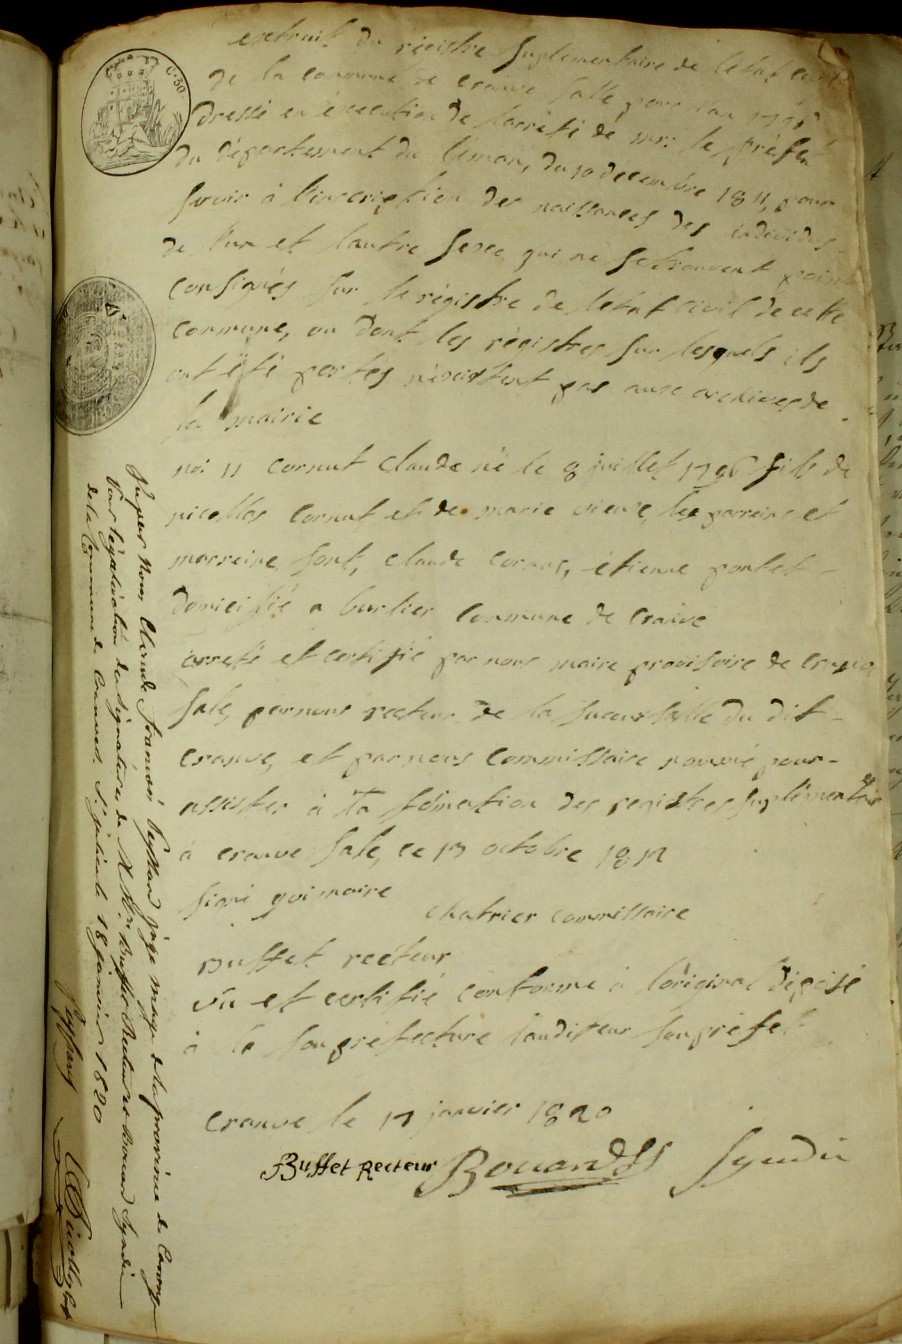 extrait du régistre suplementaire de letat civil
de la commune de cranve salle pour lan 1796
dressé en éxecution de larrété de mr: le préfet
du département du leman, du 10 decembre 1811, pour
servir à l'inscription des naissances des individus
de l'un et lautre sexe qui ne se trouvent point
consignés sur le régistre de letat civil de cette
commune, ou dont les régistres sur lesquels ils
ont été portés n'existent pas aux archives de
la mairie
no: 11 cornut claude né le 8 juillet 1796 fils de
nicollas cornut et de marie vieve, les parreins et
marreine sont, claude cornut, étienne pontet
domicillié a burlier commune de cranve
arrété et certifié par nous maire provisoire de cranve
sale, par nous recteur de la sucursalle du dit
cranve, et par nous commissaire nommé pour
assister à la formation des registres suplémentaires
à cranve sale, ce 13 octobre 1812
signé goi maire
chatrier commissaire
Buffet recteur
vû et certifié conforme à l'original déposé
à la souprefecture lauditeur souprefet
cranve le 17 janvier 1820
Buffet Recteur Bouands Syndic
Vu par Nous, Claude françois juge mage de la province de Carouge
Pour légalisation des signatures de M. Mrs. Buffet Recteur et Syndic
de la Commune de Cranves. St. julien le 18 janvier 1820
C. 50